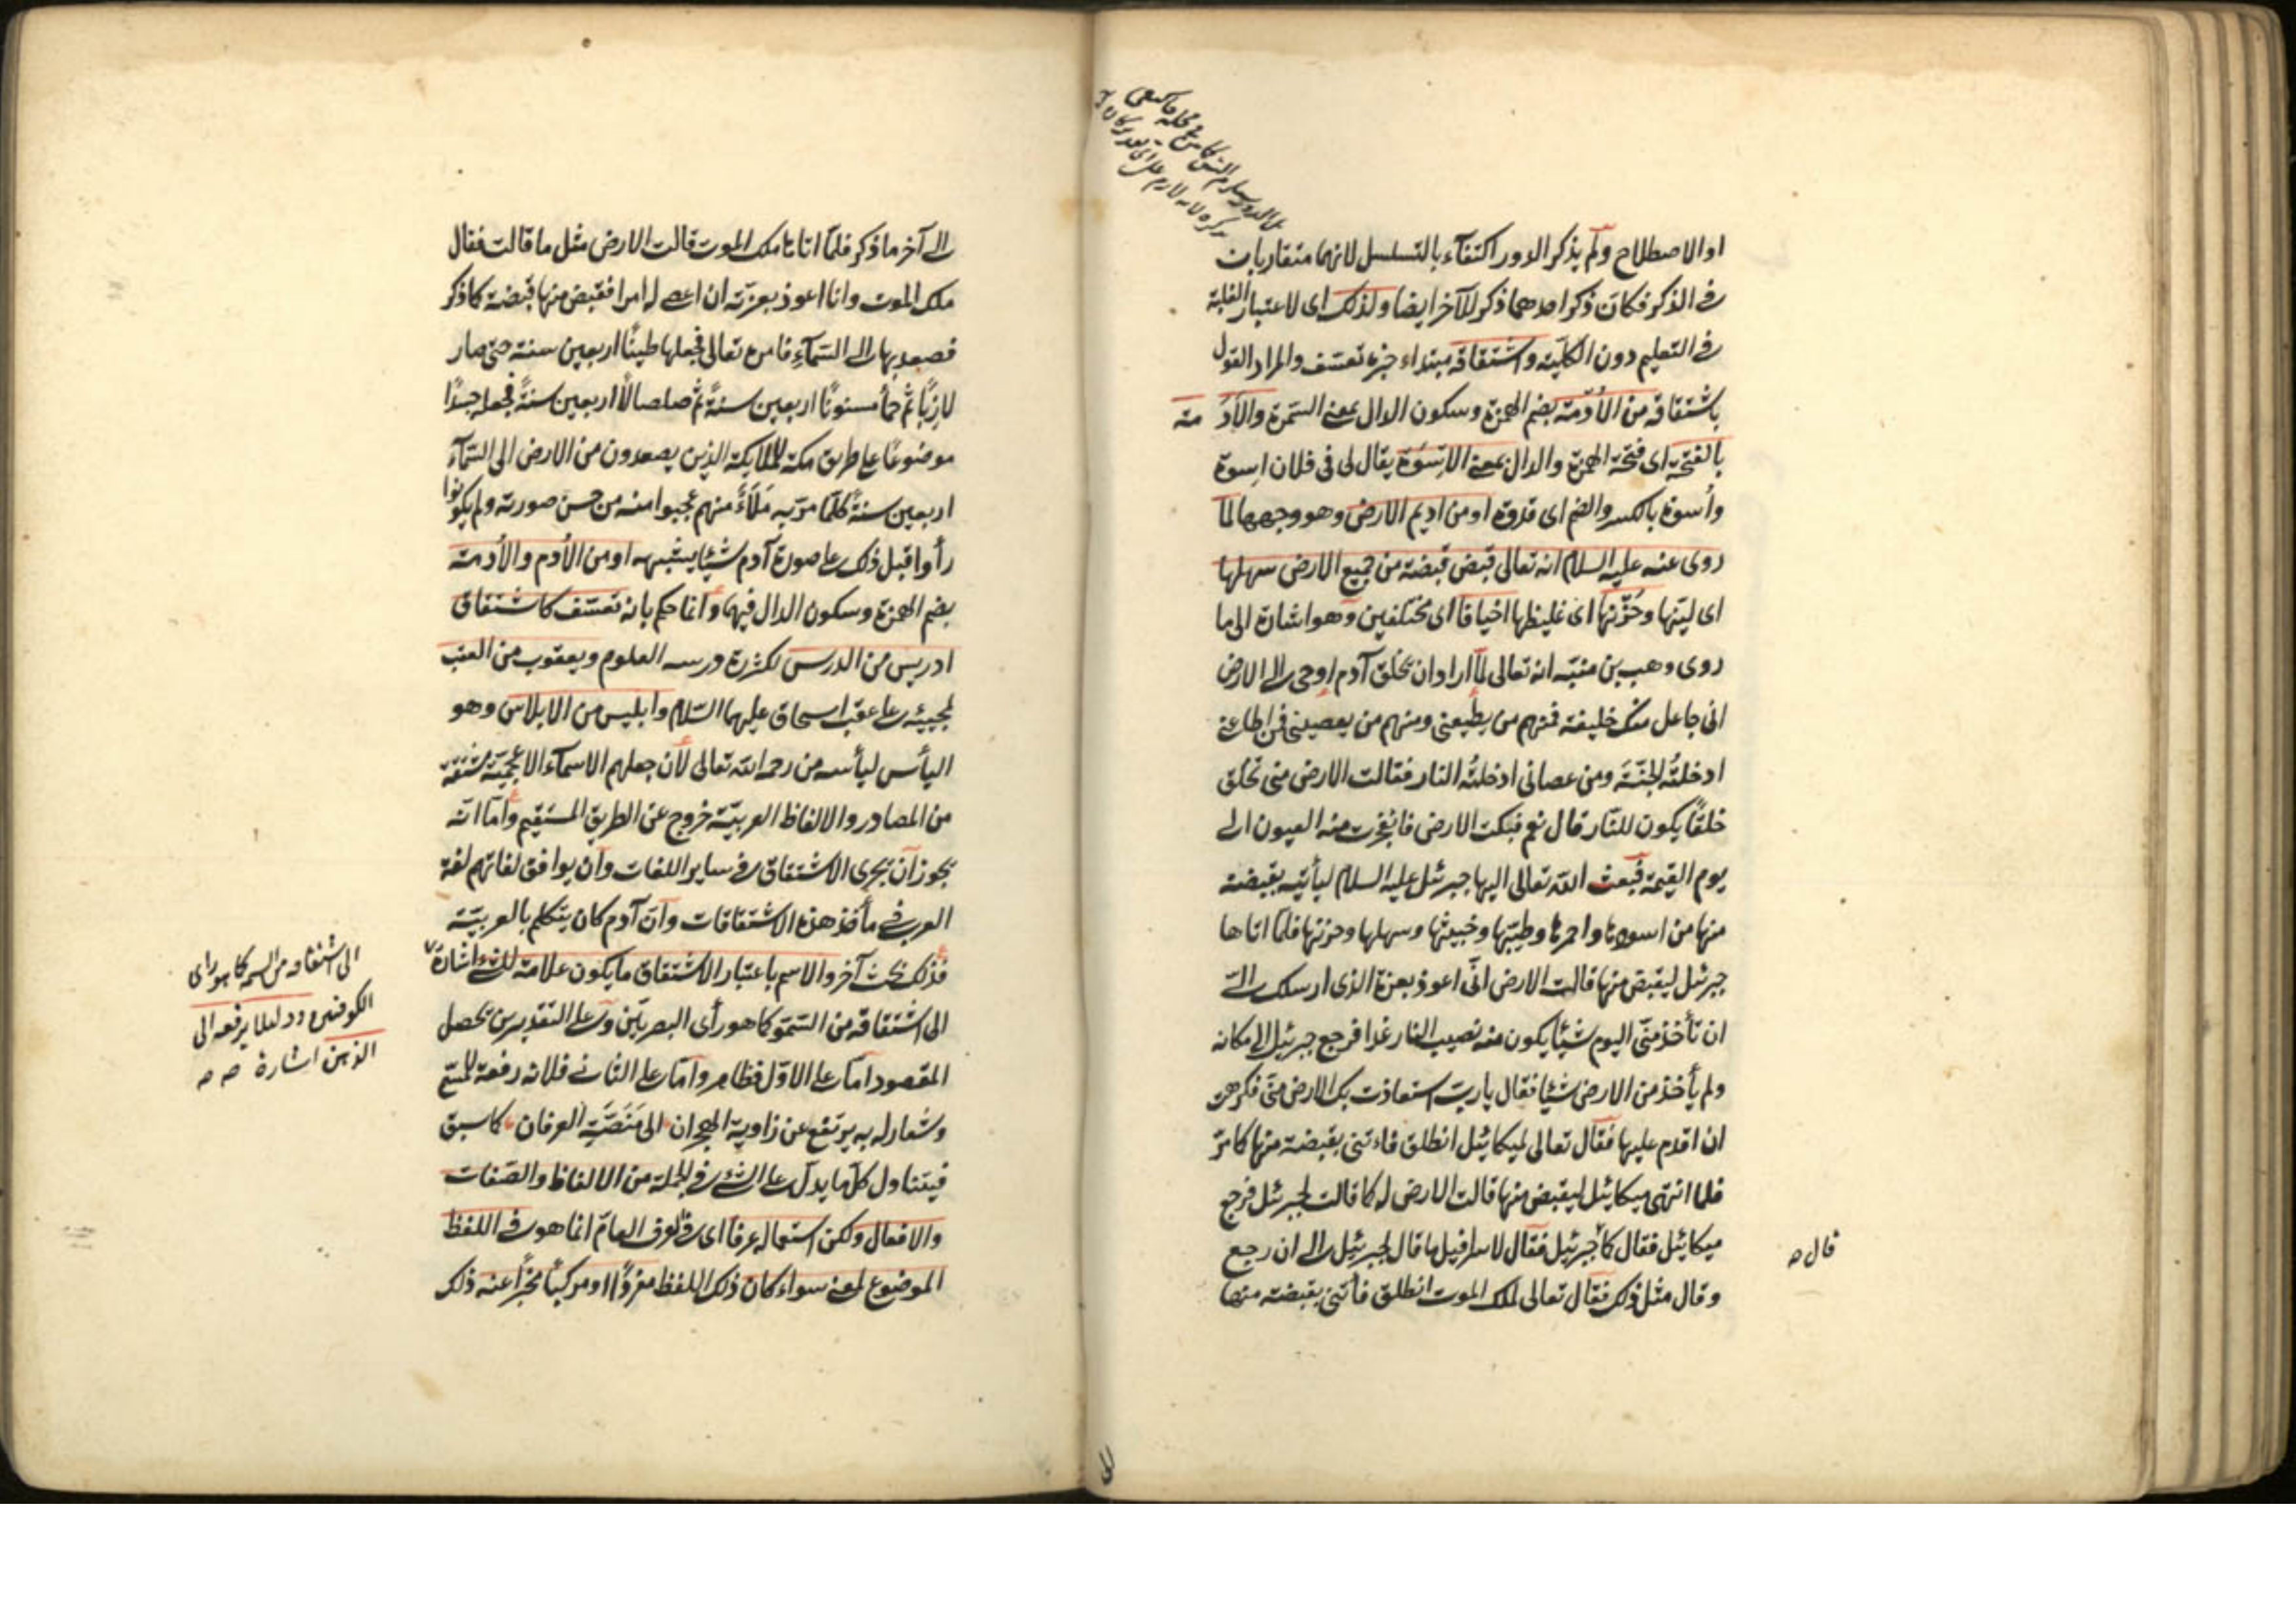 او الاصطلاح ولم يذكر الدور اكتفآء بالتسلسل لانهما متقاربان
في الذكر فكان ذكر احدهما ذكر للآخر ايضا ولذلك اى لاعتبار الغلبة
في التعليم دون الكلية واشتقاقه مبتداء خبره تعسف والمراد القول
باشتقاقه من الأدمة بضم الهمزة وسكون الدال بمعنى السمرة والأدمة
بالفتحة اى فتحة الهمزة والدال بمعنى الاسوة يقال لى فى فلان اسوة
واُسوة بالكسر والضم اى قدوة او من اديم الارض وهو وجهها لما
روى عنه عليه السلام انه تعالى قبض قبضة من جميع الارض سهلها
اى لينها وحزنها اى غليظها اخيافا اى مختلفين وهو اشارة الى ما
روى وهب بن منبه انه تعالى لمّا اراد ان يخلق آدم اوحى الى الارض
انى جاعل منك خليفة فمنهم من يطيعنى ومنهم من يعصينى فمن اطاعنى
ادخلتُه الجنّة ومن عصانى ادخلتُه النار فقالت الارض منى تخلق
خلقًا يكون للنّار قال نعم فبكت الارض فانفجرت منه العيون الى
يوم القيمة فبعث الله تعالى اليها جبرئيل عليه السلام ليأتيه بقبضة
منها من اسودها واحمرها وطيّبها وخبيثها وسهلها وحزنها فلمّا اتاها
جبرئيل ليقبض منها قالت الارض انّى اعوذ بعزة الذى ارسلك الىّ
ان تأخذ منّى اليوم شيئا يكون منه نصيب النار غدا فرجع جبرئيل الى مكانه
ولم يأخذ من الارض شيئا فقال يا ربّ استعاذت بك الارض منّى فكرهت
ان اقدم عليها فقال تعالى لميكائيل انطلق فاءتنى بقبضة منها كما مرّ
فلما انتهى ميكائيل ليقبض منها قالت الارض له كما قالت لجبرئيل فرجع
ميكائيل فقال كما جبرئيل فقال لاسرافيل ما قال لجبرئيل الى ان رجع
قال صه
وقال مثل ذلك فقال تعالى لملك الموت انطلق فأتنى بقبضة منها
الى آخر ما ذكر فلمّا اتاها ملك الموت قالت الارض مثل ما قالت فقال
ملك الموت وانا اعوذ بعزته ان اعصى له امرا فقبض منها قبضة كما ذكر
فصعد بها الى السّمآء فامره تعالى فجعلها طينًا اربعين سنة حتى صار
لازبًا ثم حمأ مسنونًا اربعين سنةً ثم صلصالًا اربعين سنةً فجعله جسدًا
موضوعًا على طريق مكة للملائكة الذين يصعدون من الارض الى السّمآء
اربعين سنةً كلّما مرّ به ملأٌ منهم عجبوا منه من حسن صورته ولم يكونوا
رأوا قبل ذلك على صورة آدم شيئا يشبهه او من الأدم والأدمة
بضم الهمزة وسكون الدال فيهما وانما حكم بانه تعسّف كاشتقاق
ادريس من الدرس لكثرة درسه العلوم ويعقوب من العقب
لمجيئه على عقب اسحاق عليهما السّلام وابليس من الابلاس وهو
اليأس ليأسه من رحمة الله تعالى لأن جعلهم الاسمآء الاعجميّة مشتقة
من المصادر والالفاظ العربيّة خروج عن الطريق المستقيم وامّا انّه
يجوز أن يجرى الاشتقاق فى ساير اللغات وأن يوافق لغاتهم لغة
العرب فى مأخذ هذه الاشتقاقات وانّ آدم كان يتكلم بالعربيّة
فذلك بحث آخر والاسم باعتبار الاشتقاق ما يكون علامة للشئ اشارة
الى اشتقاقه من السموّ كما هو رأى البصريّين وعلى التقديرين يحصل
المقصود امّا على الاوّل فظاهر وامّا على الثانى فلانه رفعة للمسمّى
وشعار له به يرتفع عن زاوية الهجران الى منصّة العرفان كما سبق
فيتناول كلّ ما يدلّ على الشئ فى الجملة من الالفاظ والصّفات
والافعال ولكن استعماله عرفا اى فى العرف العامّ انما هو فى اللفظ
الموضوع لمعنى سواء كان ذلك اللفظ مفردًا او مركبًا مخبرًا عنه ذلك
الى اشتقاقه من السمة كما هو راى
الكوفيين ودليلا يرفعه الى
الذهن اشارة صه صه